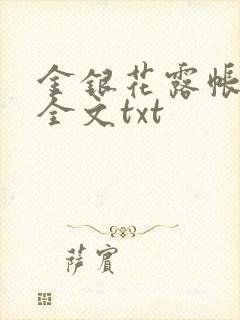 金银花露帐
全文txt
萨宾